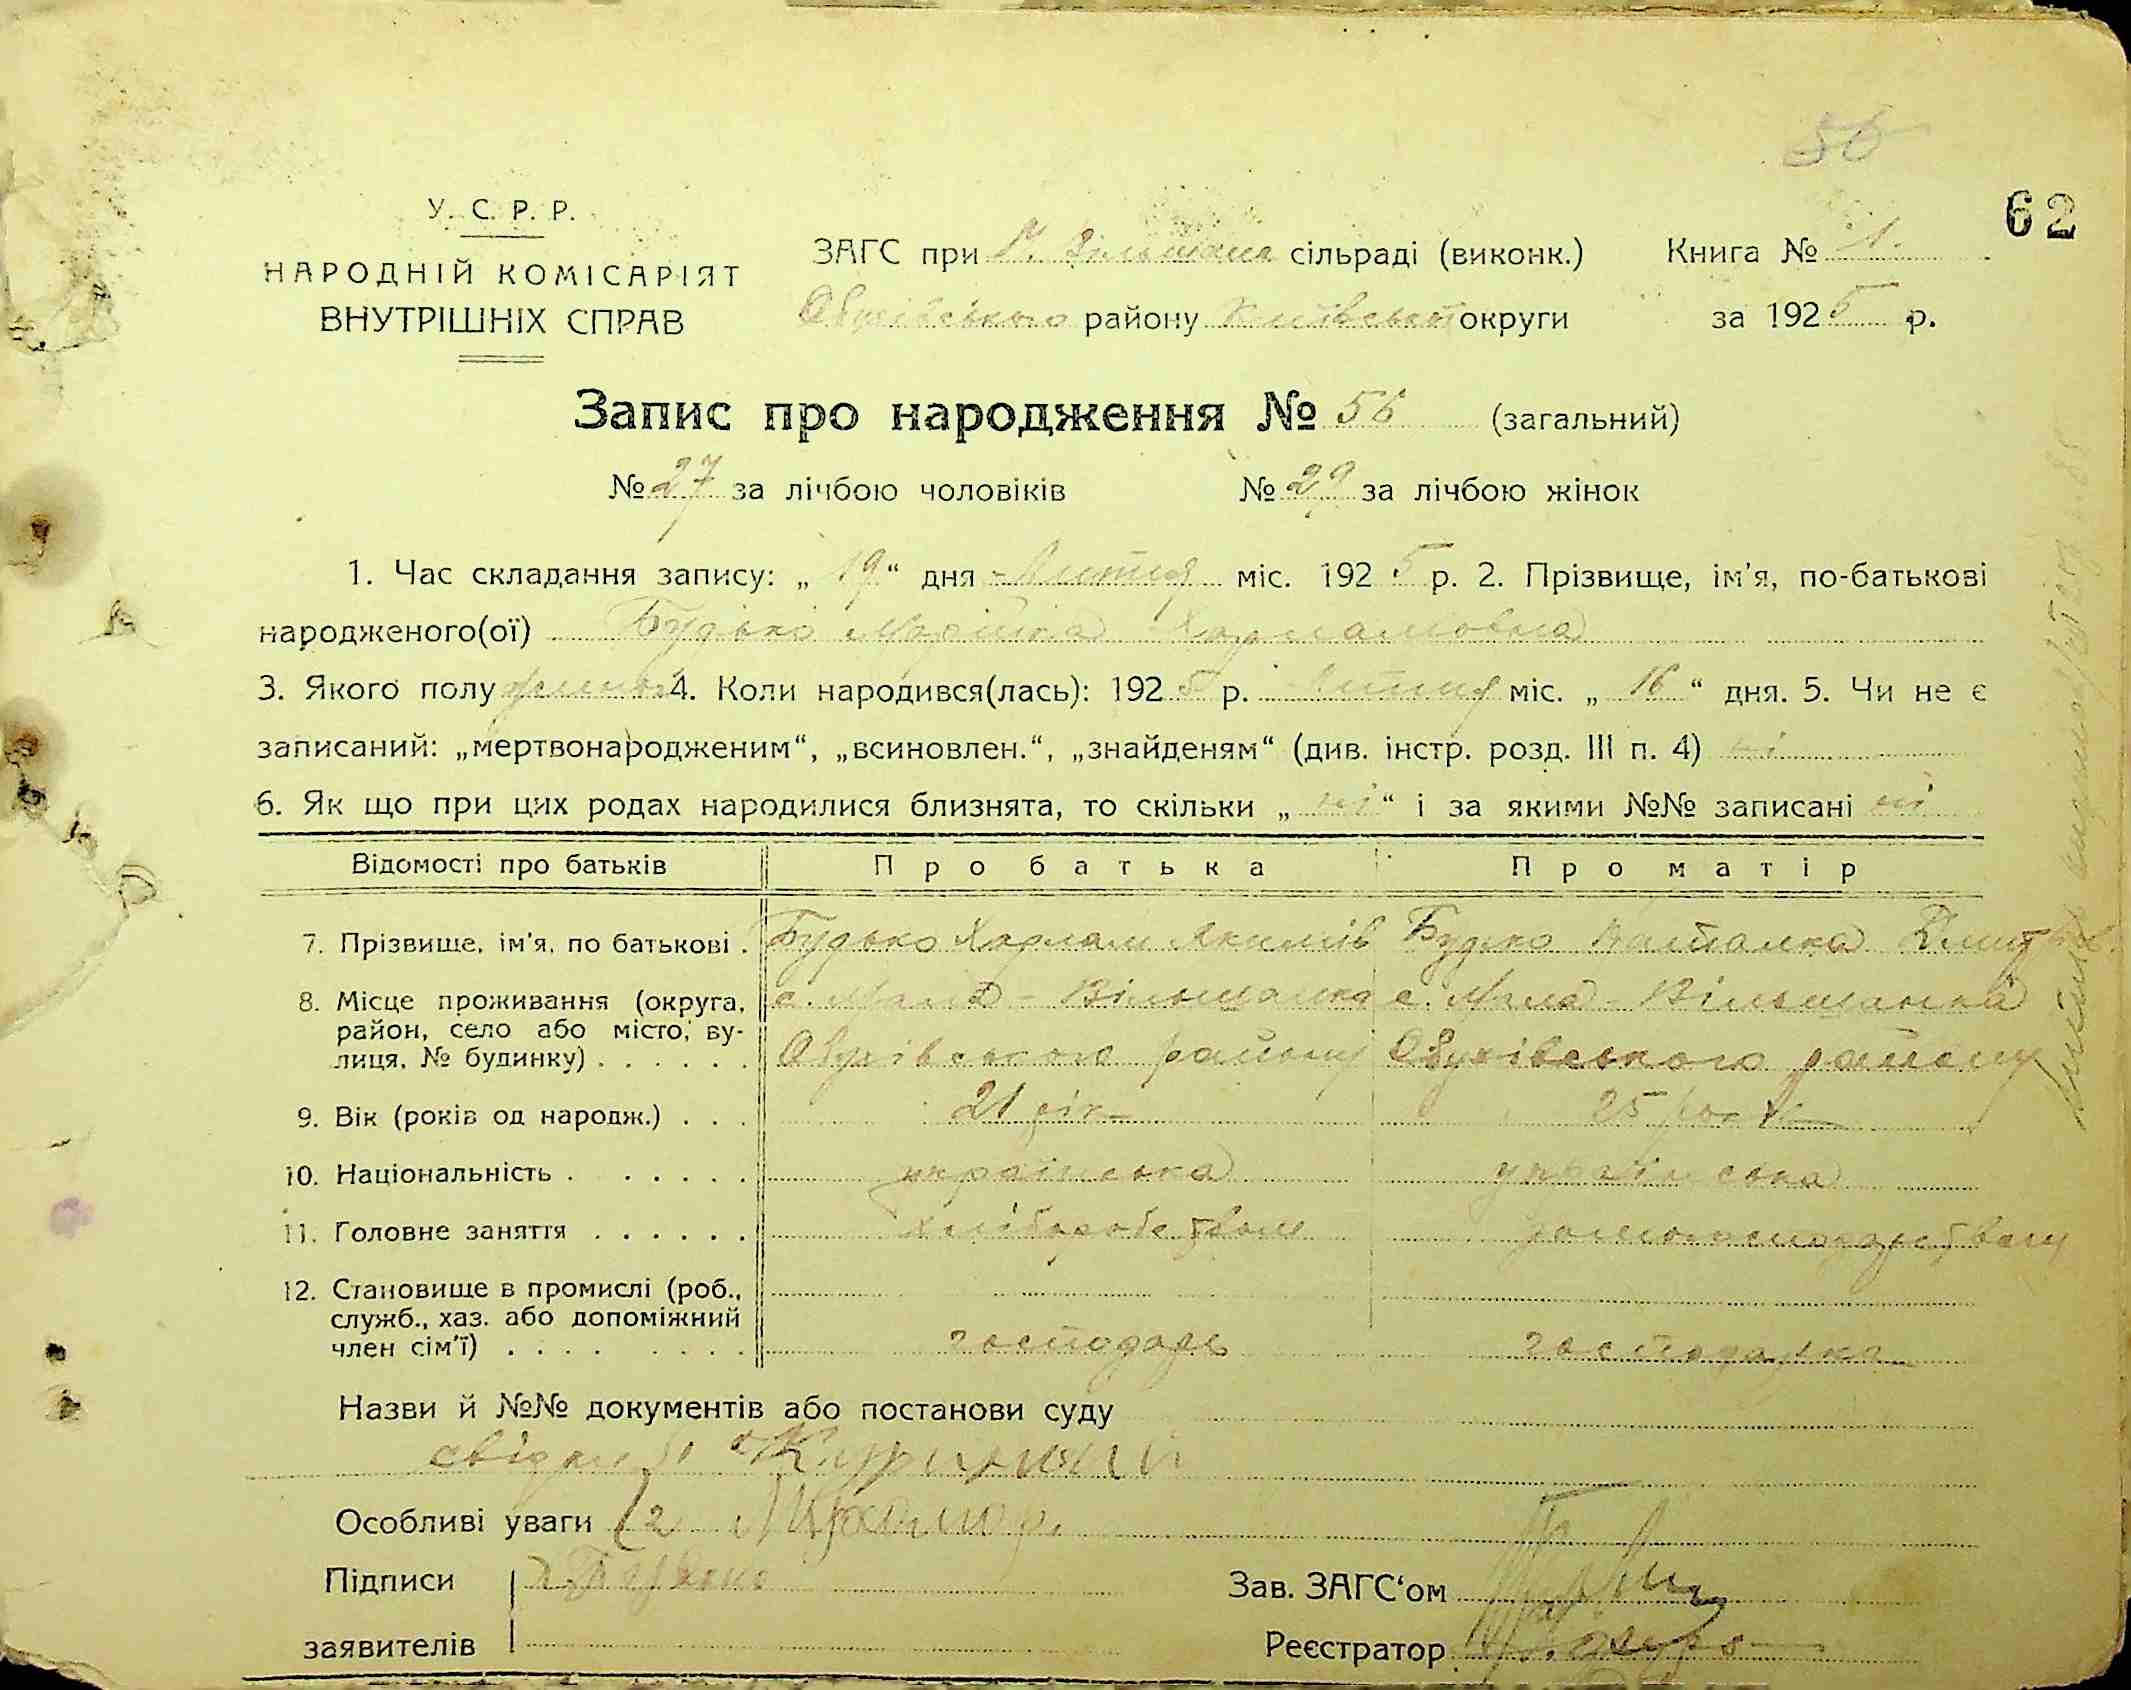 56
62
У. С. Р. Р.
НАРОДНІЙ КОМІСАРІЯТ
ВНУТРІШНІХ СПРАВ
ЗАГС при М. Вільшанс сільраді (виконк.) Книга № 1.
Обухівського району Київської округи за 1925 р.
Запис про народження № 56 (загальний)
№ 27 за лічбою чоловіків № 29 за лічбою жінок
1. Час складання запису: „ 19 “ дня Лютня міс. 1925 р. 2. Прізвище, ім'я, по-батькові
народженого(ої) Будько Марійка Харламовна
3. Якого полу жіноч 4. Коли народився(лась): 1925 р. Лютня міс. „ 16 “ дня. 5. Чи не є
записаний: „мертвонародженим“, „всиновлен.“, „знайденям“ (див. інстр. розд. III п. 4) ні
6. Як що при цих родах народилися близнята, то скільки „ ні “ і за якими №№ записані ні
Відомості про батьків Про батька Про матір
7. Прізвище, ім'я, по батькові . Будько Харлам Якимів Будко Наталка Дмитровн.
8. Місце проживання (округа, с. Мала - Вільшанка с. Мала - Вільшанка
район, село або місто, ву-
лиця, № будинку) . . . . . . Обухівського району Обухівського району
9. Вік (років од народж.) . . . 21 рік 25 років
10. Національність . . . . . . українська українська
11. Головне заняття . . . . . . хліборобством домогосподарством
12. Становище в промислі (роб.,
служб., хаз. або допоміжний
член сім'ї) . . . . . . . . господарь господарка
Назви й №№ документів або постанови суду
свідки
Особливі уваги
Підписи Будько
заявителів
Зав. ЗАГС‘ом
Реєстратор